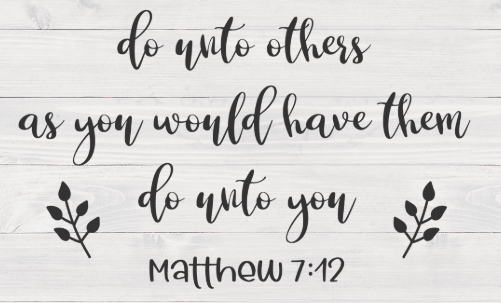 do unto others
as you would have them
do unto you
Matthew 7:12